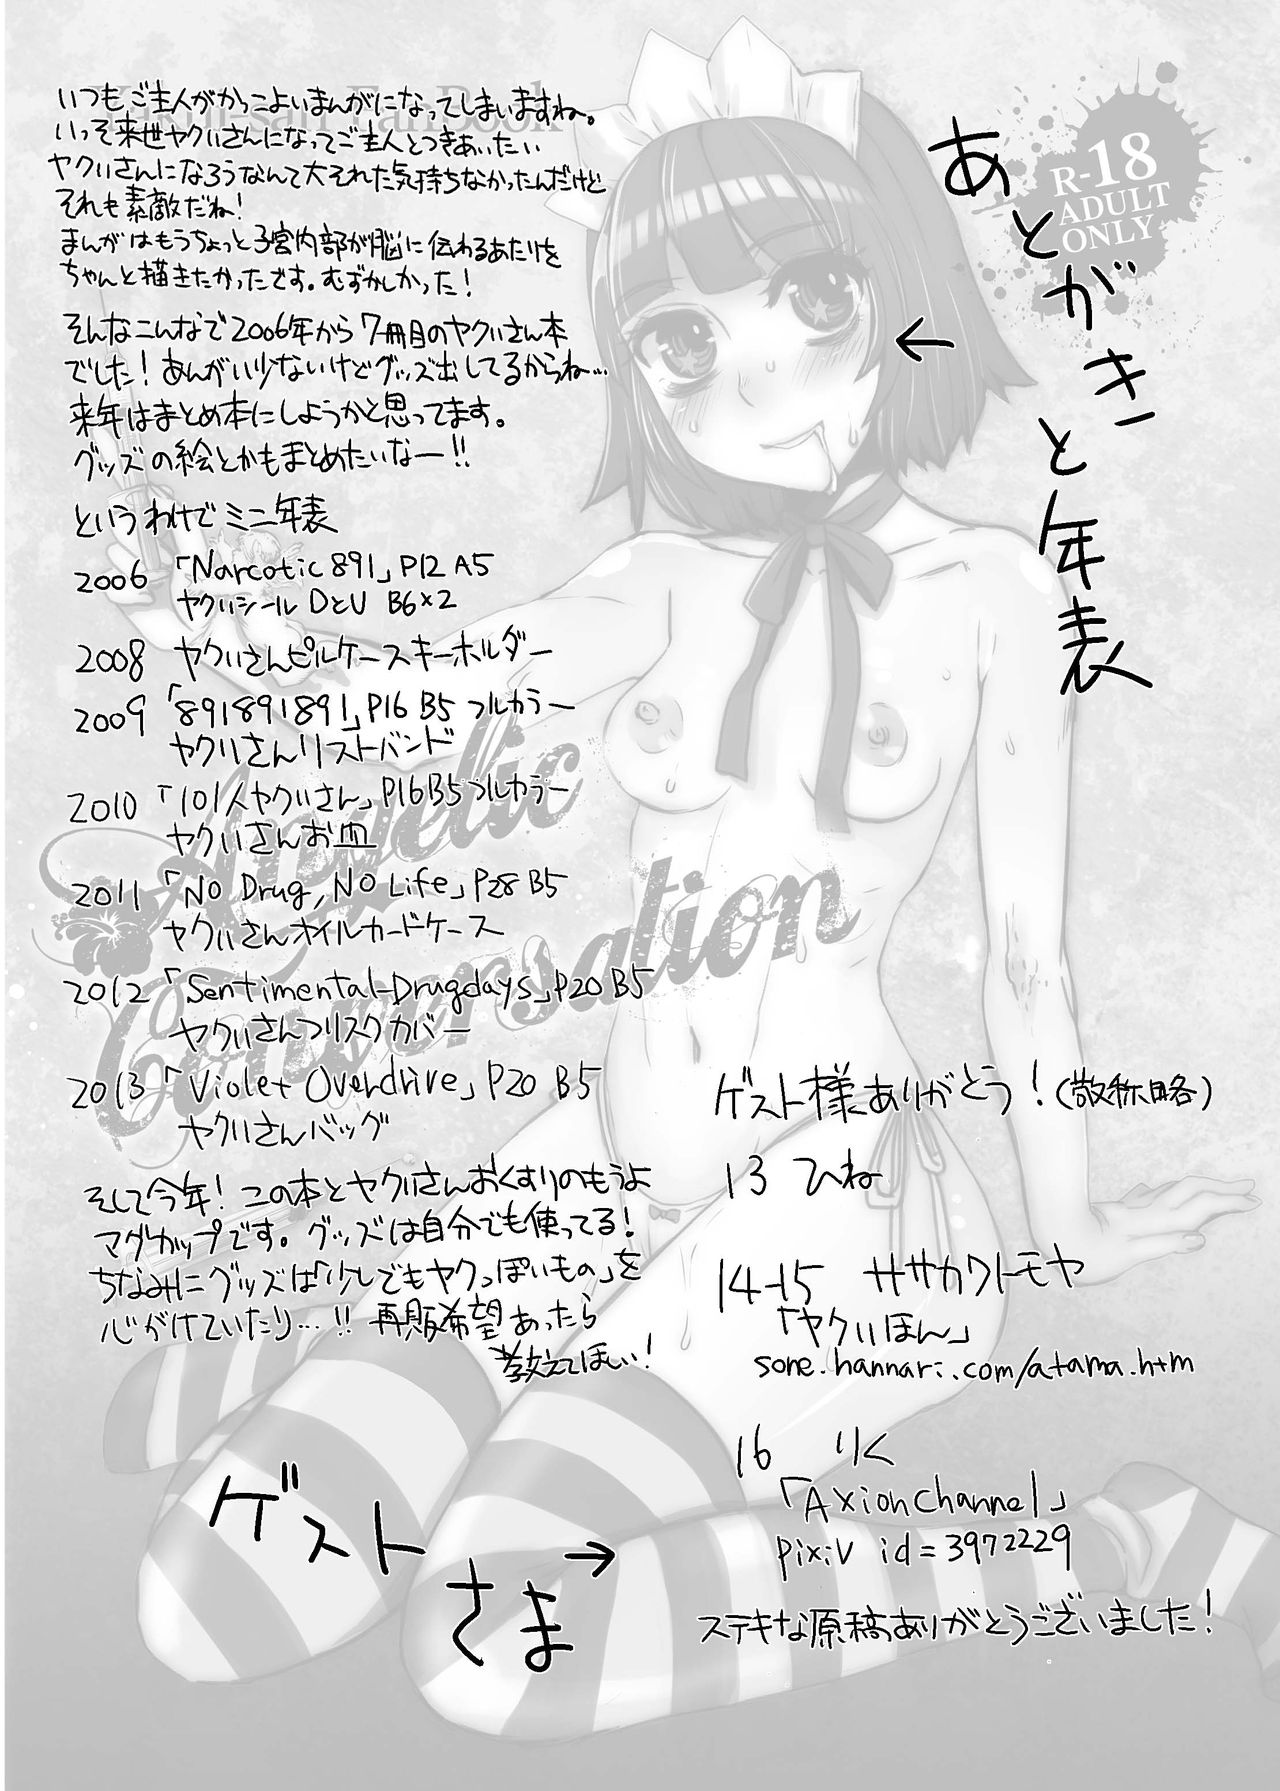 あとがきと年表
R-18
ADULT
ONLY
いつもご主人がかっこよいまんがになってしまいますね。
いっそ来世ヤクいさんになってご主人とつきあいたい
ヤクいさんになろうなんて大それた気持ちなかったんだけど
それも素敵だね!
まんがはもうちょっと子宮内部が脳に伝わるあたりを
ちゃんと描きたかったです。むずかしかった!
そんなこんなで2006年から7冊目のヤクいさん本
でした!あんがい少ないけどグッズ出してるからね…
来年はまとめ本にしようかと思ってます。
グッズの絵とかもまとめたいなー!!
というわけでミニ年表
2006 「Narcotic 891」P12 A5
ヤクいシール DとU B6×2
2008 ヤクいさんピルケースキーホルダー
2009 「891891891」P16 B5 フルカラー
ヤクいさんリストバンド
2010 「101人ヤクいさん」P16 B5 フルカラー
ヤクいさんお皿
2011 「No Drug, No Life」P28 B5
ヤクいさんオイルカードケース
2012 「Sentimental-Drugdays」P20 B5
ヤクいさんフリスクカバー
2013 「Violet Overdrive」P20 B5
ヤクいさんバッグ
そして今年!この本とヤクいさんおくすりのもうよ
マグカップです。グッズは自分でも使ってる!
ちなみにグッズは「少しでもヤクっぽいもの」を
心がけていたり…!!再販希望あったら
教えてほしい!
Angelic
Conversation
ゲスト
さま
ゲスト様ありがとう!(敬称略)
13 ひね
14-15 ササカワトモヤ
「ヤクいほん」
sone.hannari.com/atama.htm
16 りく
「AxionChannel」
pixiv id=3972229
ステキな原稿ありがとうございました!